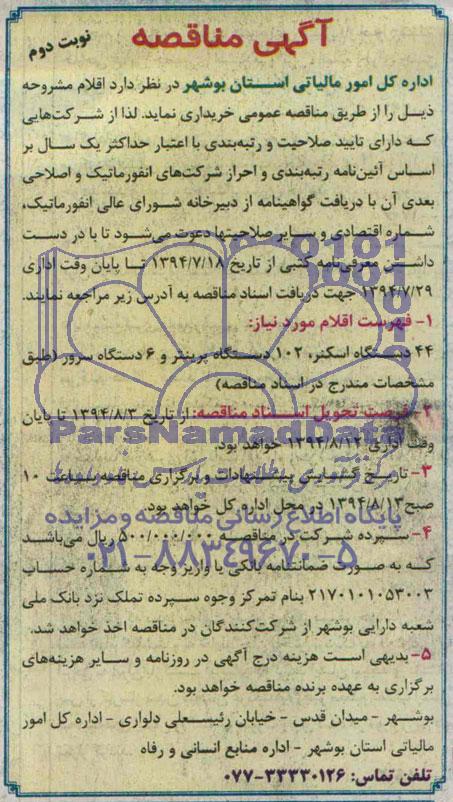 آگهی مناقصه
نوبت دوم
اداره کل امور مالیاتی استان بوشهر در نظر دارد اقلام مشروحه
ذیل را از طریق مناقصه عمومی خریداری نماید. لذا از شرکت‌هایی
که دارای تایید صلاحیت و رتبه‌بندی با اعتبار حداکثر یک سال بر
اساس آئین‌نامه رتبه‌بندی و احراز شرکت‌های انفورماتیک و اصلاحی
بعدی آن با دریافت گواهینامه از دبیرخانه شورای عالی انفورماتیک،
شماره اقتصادی و سایر صلاحیتها دعوت می‌شود تا با در دست
داشتن معرفی‌نامه کتبی از تاریخ ۱۳۹۴/۷/۱۸ تا پایان وقت اداری
۱۳۹۴/۷/۲۹ جهت دریافت اسناد مناقصه به آدرس زیر مراجعه نمایند.
۱- فهرست اقلام مورد نیاز:
۴۴ دستگاه اسکنر، ۱۰۲ دستگاه پرینتر و ۶ دستگاه سرور (طبق
مشخصات مندرج در اسناد مناقصه)
۲- فرصت تحویل اسناد مناقصه: از تاریخ ۱۳۹۴/۸/۳ تا پایان
وقت اداری ۱۳۹۴/۸/۱۲ خواهد بود.
ParsNamadData
۳- تاریخ گشایش پیشنهادات و برگزاری مناقصه ساعت ۱۰
صبح ۱۳۹۴/۸/۱۳ در محل اداره کل خواهد بود.
پایگاه اطلاع رسانی مناقصه و مزایده
۴- سپرده شرکت در مناقصه ۵۰۰/۰۰۰/۰۰۰ ریال می‌باشد
که به صورت ضمانتنامه بانکی یا واریز وجه به شماره حساب
۰۲۱-۸۸۳۴۹۶۷۰-۵
۲۱۷۰۱۰۱۰۵۳۰۰۳ بنام تمرکز وجوه سپرده تملک نزد بانک ملی
شعبه دارایی بوشهر از شرکت‌کنندگان در مناقصه اخذ خواهد شد.
۵- بدیهی است هزینه درج آگهی در روزنامه و سایر هزینه‌های
برگزاری به عهده برنده مناقصه خواهد بود.
بوشهر - میدان قدس - خیابان رئیسعلی دلواری - اداره کل امور
مالیاتی استان بوشهر - اداره منابع انسانی و رفاه
تلفن تماس: ۳۳۳۳۰۱۲۶-۰۷۷